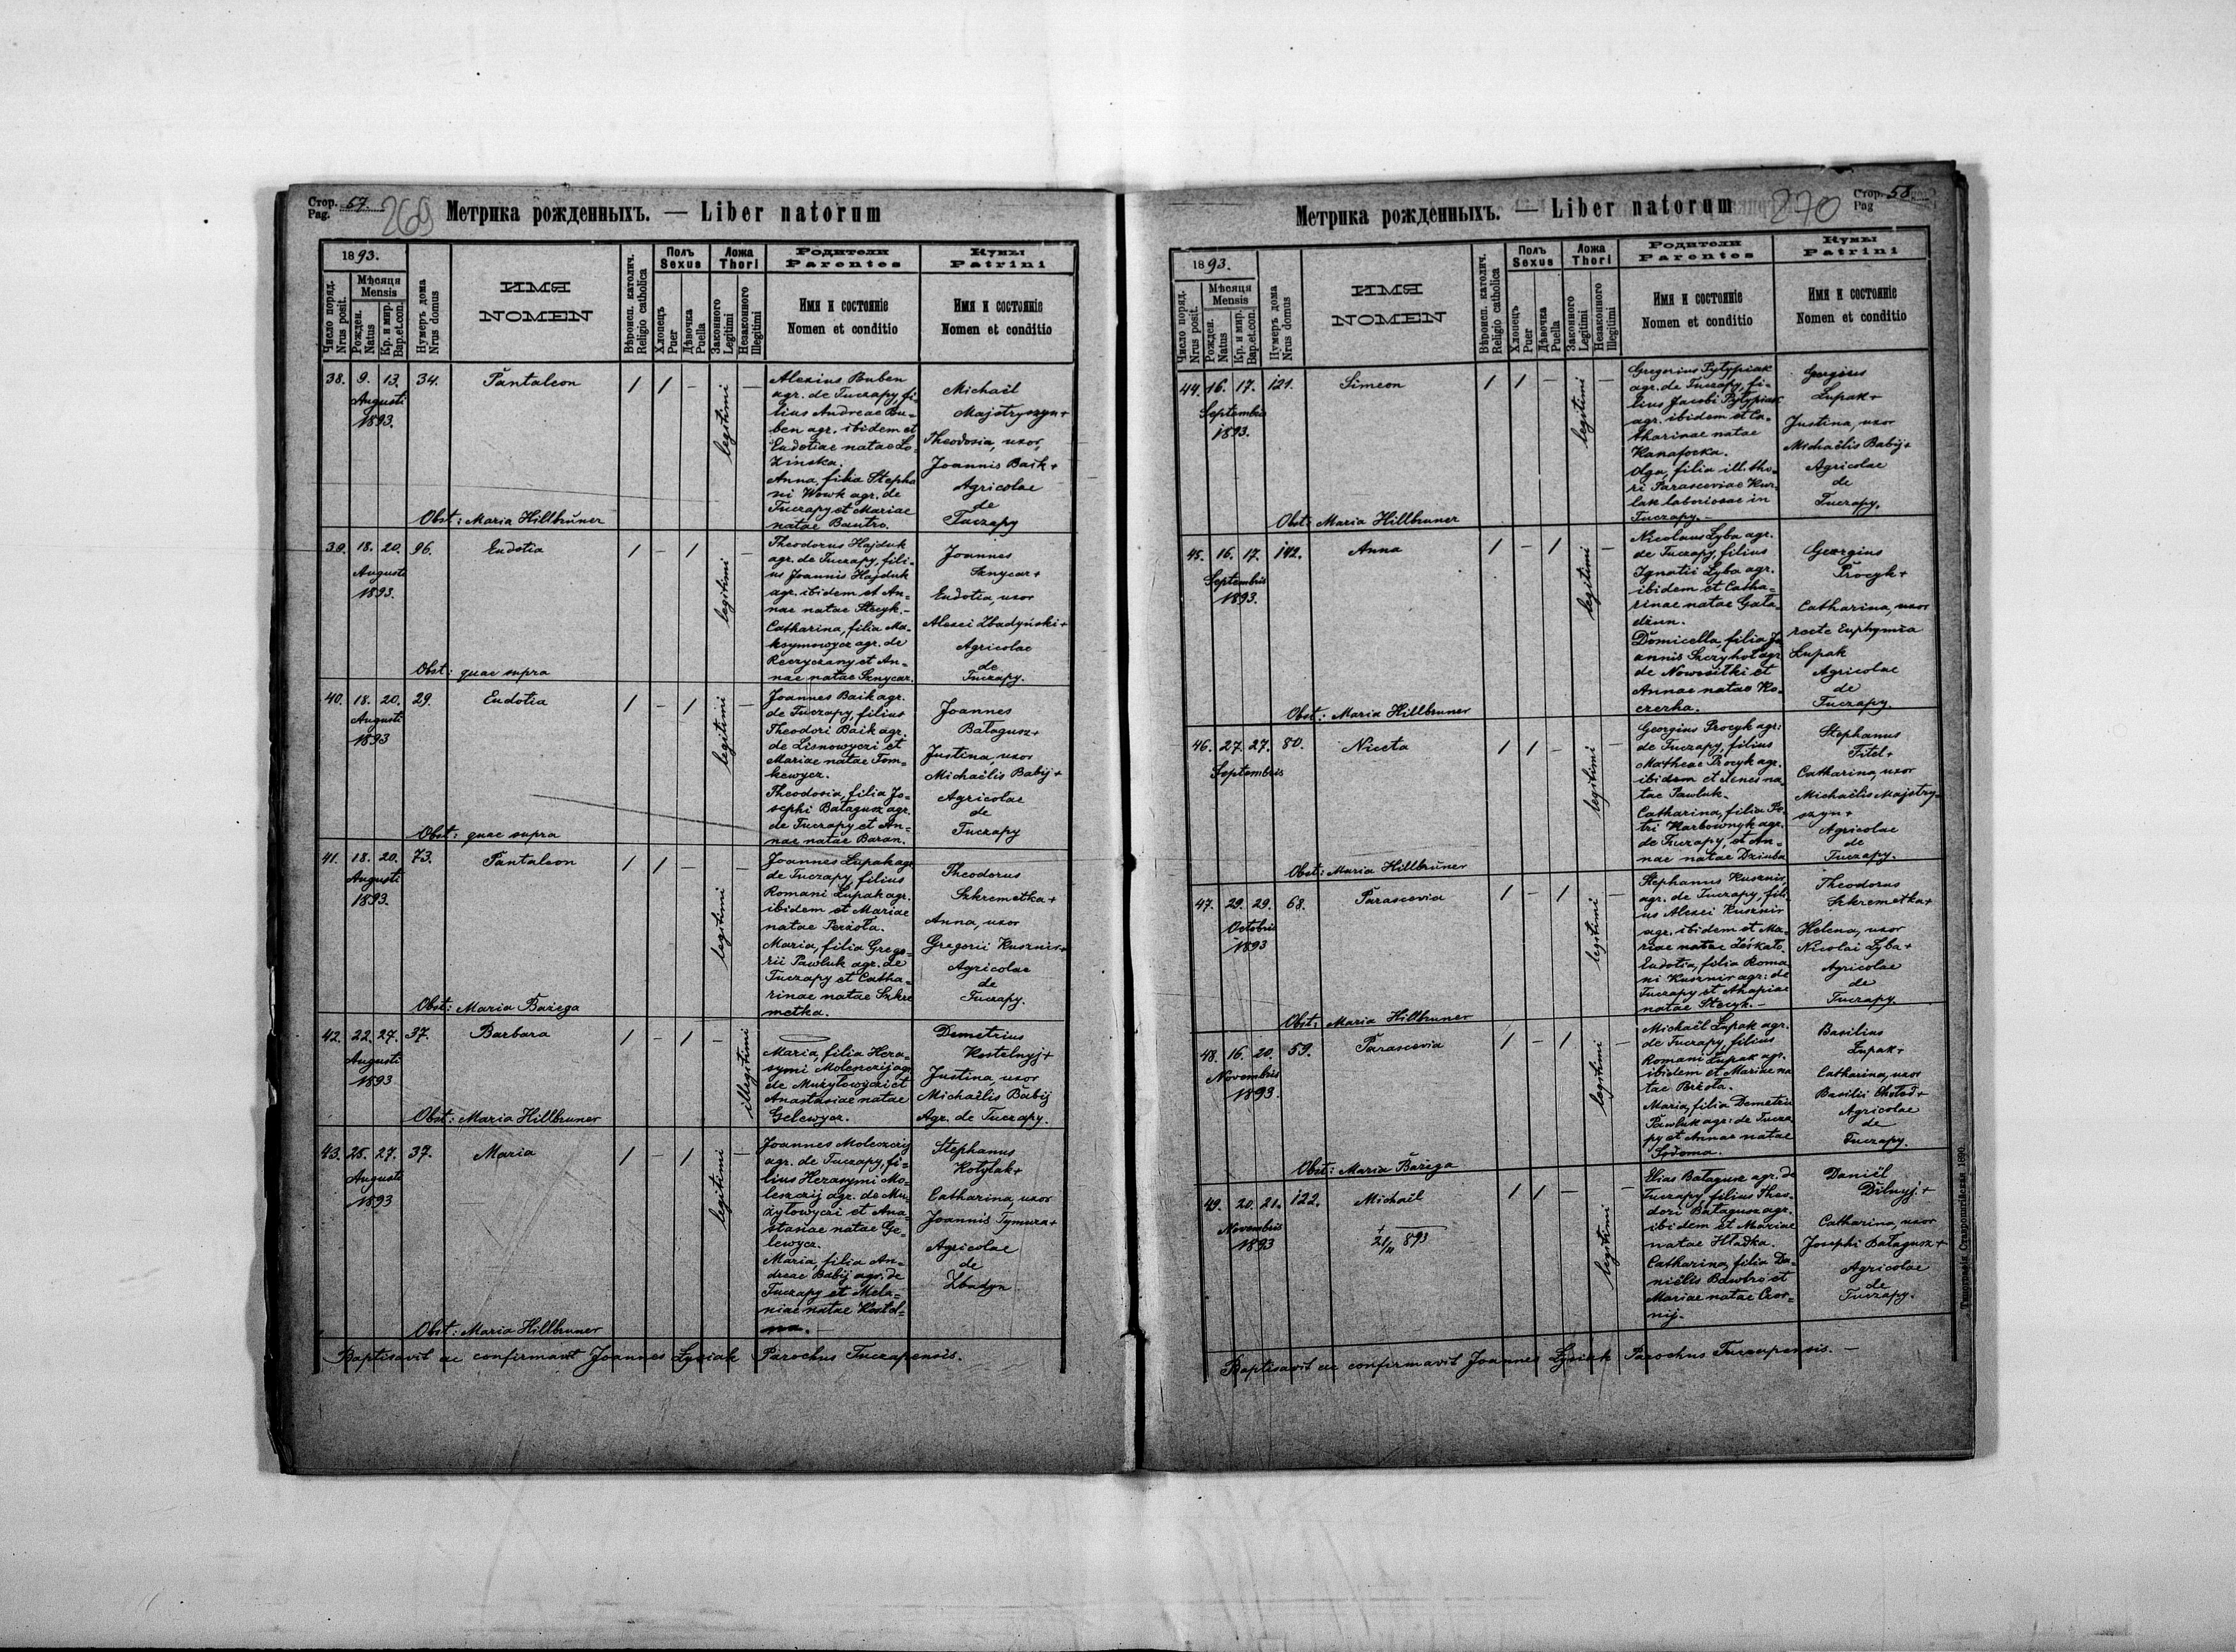 Стор. Pag. 57. 269
Метрика рожденныхъ. — Liber natorum
1893.
Число поряд. Nrus posit.
Мѣсяця Mensis
Рожден. Natus
Кр. и мир. Bap. et con.
Нумеръ дома Nrus domus
ИМЯ
NOMEN
Вѣроисп. католич. Religio catholica
Полъ Sexus
Хлопецъ Puer
Дѣвочка Puella
Ложа Thori
Законного Legitimi
Незаконного Illegitimi
Родители
Parentes
Имя и состояніе
Nomen et conditio
Кумы
Patrini
Имя и состояніе
Nomen et conditio
38. 9. 13. 34. Pantaleon / / – legitimi –
Augusti
1893.
Alexius Buben
agr. de Tuczapy, fi-
lius Andreae Bu-
ben agr. ibidem et
Eudotiae natae Lo-
zinska.
Anna, filia Stepha
ni Wowk agr. de
Tuczapy et Mariae
natae Bautro.
Michaël
Majstryszyn +
Theodosia, uxor
Joannis Baik +
Agricolae
de
Tuczapy
Obst: Maria Hillbruner
39. 18. 20. 96. Eudotia / – / legitimi –
Augusti
1893.
Theodorus Hajduk
agr. de Tuczapy, fili-
us Joannis Hajduk
agr. ibidem et An-
nae natae Stecyk. –
Catharina, filia Ma-
ksymowycz agr. de
Reczyczany et An-
nae natae Sznycar.
Joannes
Sznycar +
Eudotia, uxor
Alexei Zbadyński +
Agricolae
de
Tuczapy.
Obst: quae supra
40. 18. 20. 29. Eudotia / – / legitimi –
Augusti
1893
Joannes Baik agr.
de Tuczapy, filius
Theodori Baik agr.
de Lisnowyczi et
Mariae natae Tom-
kewycz.
Theodosia, filia Jo-
sephi Batagusz agr.
de Tuczapy et An-
nae natae Baran.
Joannes
Batagusz +
Justina, uxor
Michaëlis Babij +
Agricolae
de
Tuczapy
Obst: quae supra
41. 18. 20. 73. Pantaleon / / – legitimi –
Augusti
1893.
Joannes Łupak agr.
de Tuczapy, filius
Romani Łupak agr.
ibidem et Mariae
natae Perżoła.
Maria, filia Grego-
rii Pawluk agr. de
Tuczapy et Catha-
rinae natae Szkre
metka.
Theodorus
Szkremetka +
Anna, uxor
Gregorii Kusznir +
Agricolae
de
Tuczapy.
Obst: Maria Bażega
42. 22. 27. 37. Barbara / – / – illegitimi
Augusti
1893
Maria, filia Hera-
symi Moleszczij agr.
de Mużyłowyczi et
Anastasiae natae
Gelewycz.
Demetrius
Kostelnyj +
Justina, uxor
Michaëlis Babij
Agr. de Tuczapy.
Obst: Maria Hillbruner
43. 25. 27. 37. Maria / – / legitimi –
Augusti
1893
Joannes Moleszczij
agr. de Tuczapy, fi-
lius Herasymi Mo-
leszczij agr. de Mu-
żyłowyczi et Ana-
stasiae natae Ge-
lewycz.
Maria, filia An-
dreae Babij agr. de
Tuczapy et Mela-
niae natae Kostel-
na. –
Stephanus
Kotylak +
Catharina, uxor
Joannis Tymura +
Agricolae
de
Zbadyn
Obst: Maria Hillbruner
Baptisavit ac confirmavit Joannes Łysiak Parochus Tuczapensis.
Стор. Pag 58. 270
Метрика рожденныхъ. — Liber natorum
1893.
Число поряд. Nrus posit.
Мѣсяця Mensis
Рожден. Natus
Кр. и мир. Bap. et con.
Нумеръ дома Nrus domus
ИМЯ
NOMEN
Вѣроисп. католич. Religio catholica
Полъ Sexus
Хлопецъ Puer
Дѣвочка Puella
Ложа Thori
Законного Legitimi
Незаконного Illegitimi
Родители
Parentes
Имя и состояніе
Nomen et conditio
Кумы
Patrini
Имя и состояніе
Nomen et conditio
44. 16. 17. 121. Simeon / / – legitimi –
Septembris
1893.
Gregorius Pytypiak
agr. de Tuczapy, fi-
lius Jacobi Pytypiak
agr. ibidem et Ca-
tharinae natae
Kanafocka.
Olga, filia ill. tho-
ri Parasceviae Kur-
lak laboriosae in
Tuczapy. –
Georgius
Łupak +
Justina, uxor
Michaëlis Babij +
Agricolae
de
Tuczapy.
Obst: Maria Hillbruner
45. 16. 17. 142. Anna / – / legitimi –
Septembris
1893.
Nicolaus Łyba agr.
de Tuczapy, filius
Ignatii Łyba agr.
ibidem et Catha-
rinae natae Gała-
dżun.
Domicella, filia Jo-
annis Szczyhoł agr
de Nowosiłki et
Annae natae Ko-
czerha.
Georgius
Procyk +
Catharina, uxor
recte Euphymia
Łupak
Agricolae
de
Tuczapy.
Obst: Maria Hillbruner
46. 27. 27. 80. Niceta / / – legitimi –
Septembris
Georgius Procyk agr:
de Tuczapy, filius
Matheae Procyk agr.
ibidem et Xenes na
tae Pawluk.
Catharina, filia Pe-
tri Harbownyk agr.
de Tuczapy, et An-
nae natae Dziuba
Stephanus
Titel +
Catharina, uxor
Michaëlis Majstry-
szyn +
Agricolae
de
Tuczapy.
Obst: Maria Hillbruner
47. 29. 29. 68. Parascevia / – / legitimi –
Octobris
1893
Stephanus Kusznir
agr. de Tuczapy, fili-
us Alexei Kusznir
agr. ibidem et Ma-
riae natae Leskało.
Eudotia, filia Roma
ni Kusznir agr: de
Tuczapy et Ahapiae
natae Stecyk. –
Theodorus
Szkremetka +
Helena, uxor
Nicolai Łyba +
Agricolae
de
Tuczapy.
Obst: Maria Hillbruner
48. 16. 20. 59. Parascevia / – / legitimi –
Novembris
1893.
Michaël Łupak agr.
de Tuczapy, filius
Romani Łupak agr.
ibidem et Mariae na
tae Brżoła.
Maria, filia Demetrii
Pawluk agr: de Tucza
py et Annae natae
Sydoma.
Basilius
Łupak +
Catharina, uxor
Basilii Chołod +
Agricolae
de
Tuczapy.
Obst: Maria Bażega
49. 20. 21. 122. Michaël / / – legitimi –
Novembris
1893
+ 21/11 893
Elias Batagusz agr. de
Tuczapy, filius Theo-
dori Batagusz agr.
ibidem et Mariae
natae Hładka.
Catharina, filia Da-
niëlis Bawtro et
Mariae natae Czor-
nij.
Daniël
Dilnyj. +
Catharina, uxor
Josephi Batagusz +
Agricolae
de
Tuczapy.
Baptisavit ac confirmavit Joannes Łysiak Parochus Tuczapensis. –
Типографія Ставропигійская 1890.